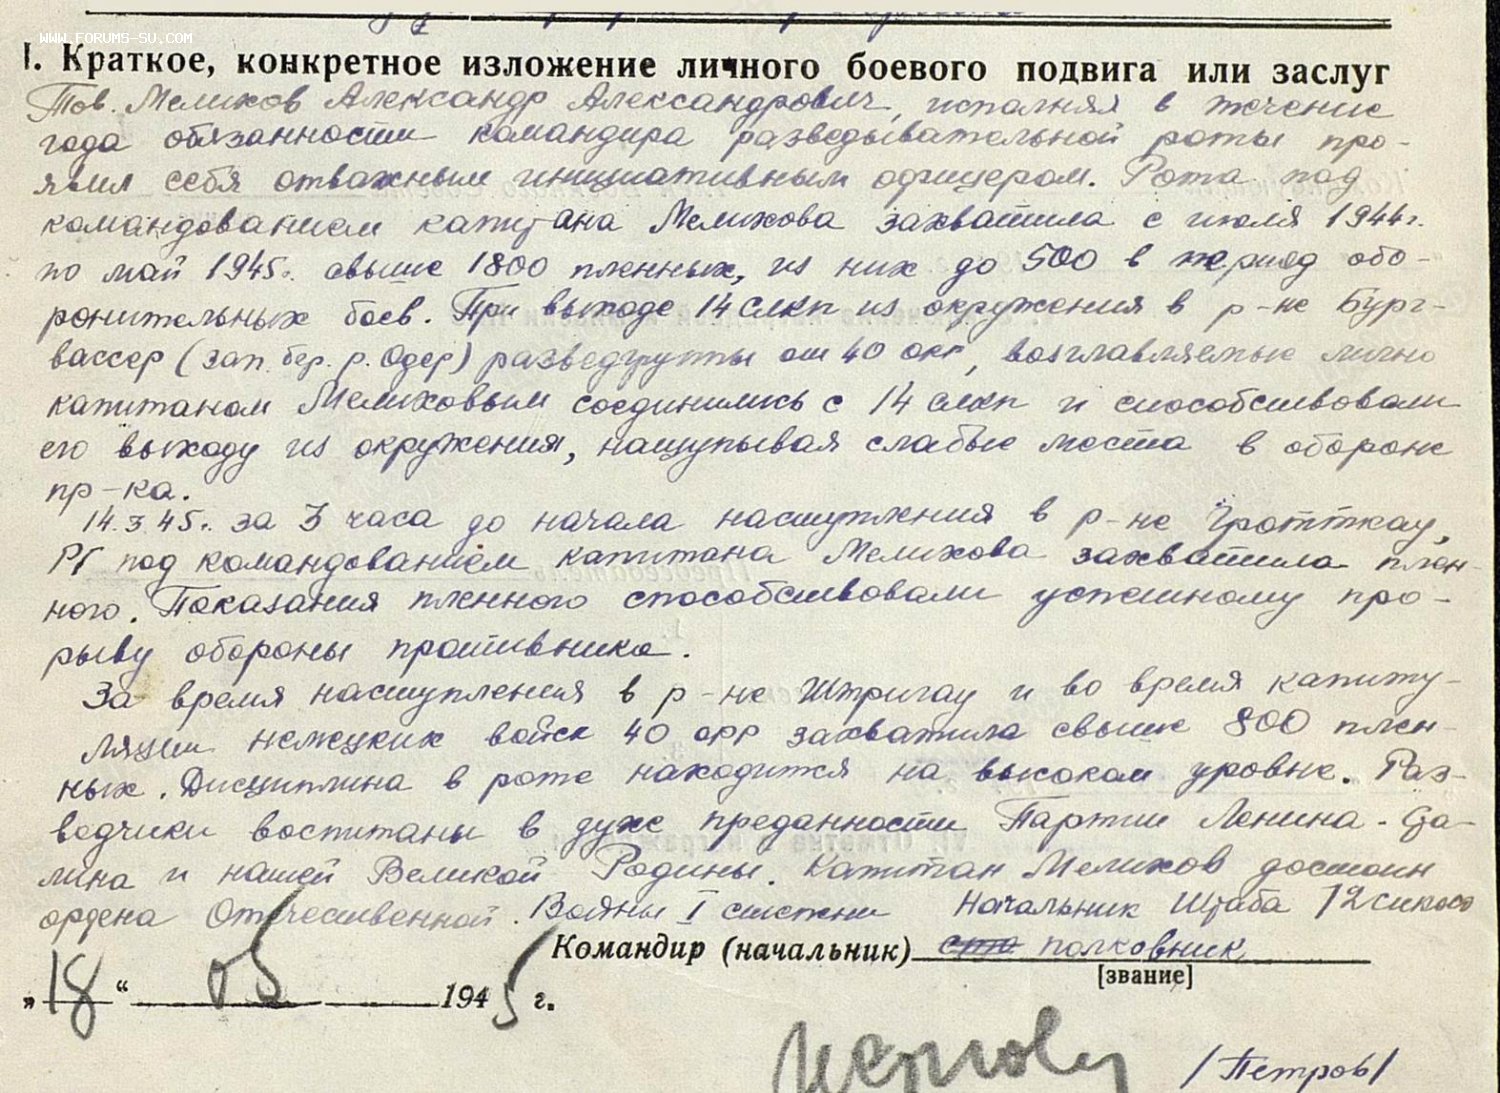 WWW.FORUMS-SU.COM
I. Краткое, конкретное изложение личного боевого подвига или заслуг
Тов. Мелихов Александр Александрович, исполняя в течение
года обязанности командира разведывательной роты про-
явил себя отважным инициативным офицером. Рота под
командованием капитана Мелихова захватила с июля 1944г.
по май 1945г. свыше 1800 пленных, из них до 500 в период обо-
ронительных боев. При выходе 14 слкп из окружения в р-не Бург-
вассер (зап. бер. р. Одер) разведгруппы от 40 орр, возглавляемые лично
капитаном Мелиховым соединились с 14 слкп и способствовали
его выходу из окружения, нащупывая слабые места в обороне
пр-ка.
14.3.45г. за 3 часа до начала наступления в р-не Гротткау,
РГ под командованием капитана Мелихова захватила плен-
ного. Показания пленного способствовали успешному про-
рыву обороны противника.
За время наступления в р-не Штригау и во время капиту-
ляции немецких войск 40 орр захватила свыше 800 плен-
ных. Дисциплина в роте находится на высоком уровне. Раз-
ведчики воспитаны в духе преданности Партии Ленина-Ста-
лина и нашей Великой Родины. Капитан Мелихов достоин
ордена Отечественной Войны I степени Начальник Штаба
Командир (начальник) полковник
[звание]
"18" 05 1945 г.
/Петров/